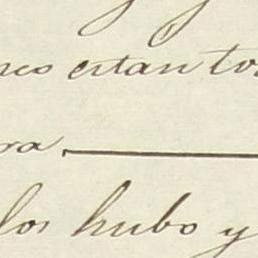 nes estan to
ra
los hubo y